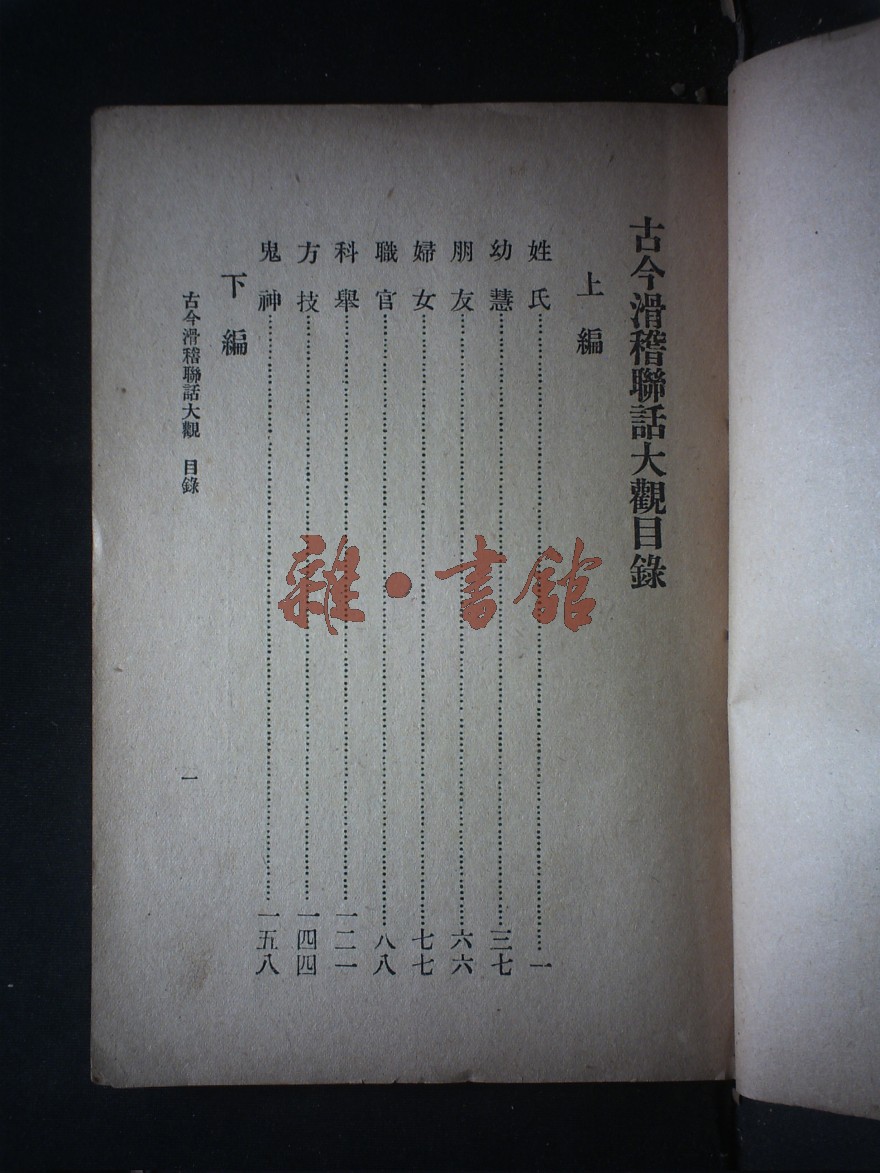 古今滑稽聯話大觀目錄
上編
姓氏⋯⋯⋯⋯⋯⋯⋯⋯⋯⋯一
幼慧⋯⋯⋯⋯⋯⋯⋯⋯⋯⋯三七
朋友⋯⋯⋯⋯⋯⋯⋯⋯⋯⋯六六
婦女⋯⋯⋯⋯⋯⋯⋯⋯⋯⋯七七
職官⋯⋯⋯⋯⋯⋯⋯⋯⋯⋯八八
科舉⋯⋯⋯⋯⋯⋯⋯⋯⋯⋯一二一
方技⋯⋯⋯⋯⋯⋯⋯⋯⋯⋯一四四
鬼神⋯⋯⋯⋯⋯⋯⋯⋯⋯⋯一五八
下編
古今滑稽聯話大觀 目錄 一
雜・書館